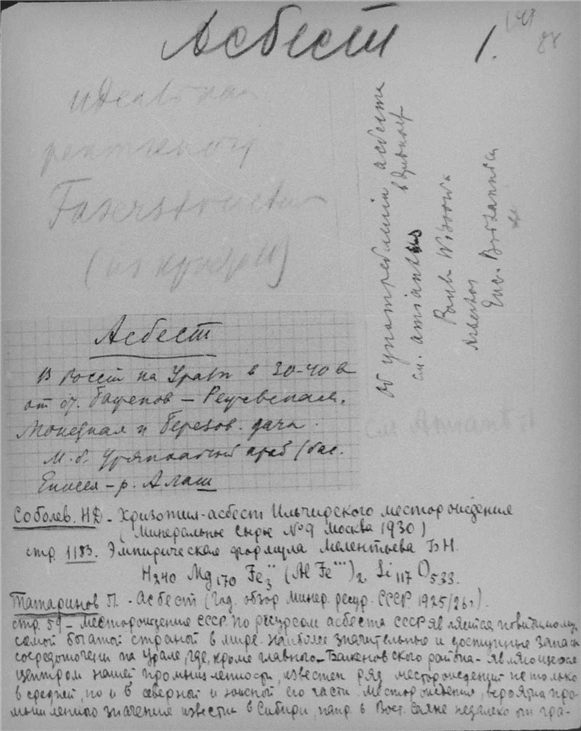 Асбест 1.
Идеальная
Faserstructur
Об употреблении асбеста
см. amiant
Enc. Britannica
см. Amiant
Асбест
В России на Урале в 30-40 в
от ст. Баженов – Режевская,
Монетная и Березов. дача.
М. б. Урянхайский край / бас.
Енисея – р. Алаш
Соболев. НД – Хризотил-асбест Ильчирского месторождения
(Минеральное сырье № 9 Москва 1930)
стр. 1183. Эмпирическая формула Мелентьева Б.Н.
H240 Mg170 Fe3'' (Al Fe''')2 Si117 O533.
Татаринов П. – Асбест (Год. обзор минер. ресур. СССР 1925/26 г.)
стр. 59 – Месторождение СССР. По ресурсам асбеста СССР является повидимому
самой богатой страной в мире. Наиболее значительные и доступные запасы
сосредоточены на Урале, где, кроме главного – Баженовского района – являющегося
центром нашей промышленности, известен ряд месторождений не только
в средней, но и в северной и южной его части. Месторождения, вероятно про-
мышленного значения известны в Сибири, напр. в Вост. Саяне недалеко от гра-